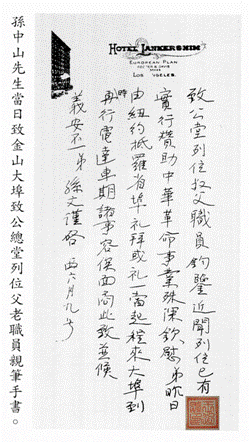 孫中山先生當日致金山大埠致公總堂列位父老職員親筆手書。
HOTEL LANKERSHIM
EUROPEAN PLAN
致公堂列位叔父職員鈞鑒近聞列位已有
實行贊助中華革命事業殊深欽慰弟昨日
由紐約抵羅省埠礼拜或礼一當起程來大埠到
時再行電達車期諸事容俟面商此致並候
義安不一弟孫文謹啓西六月九号